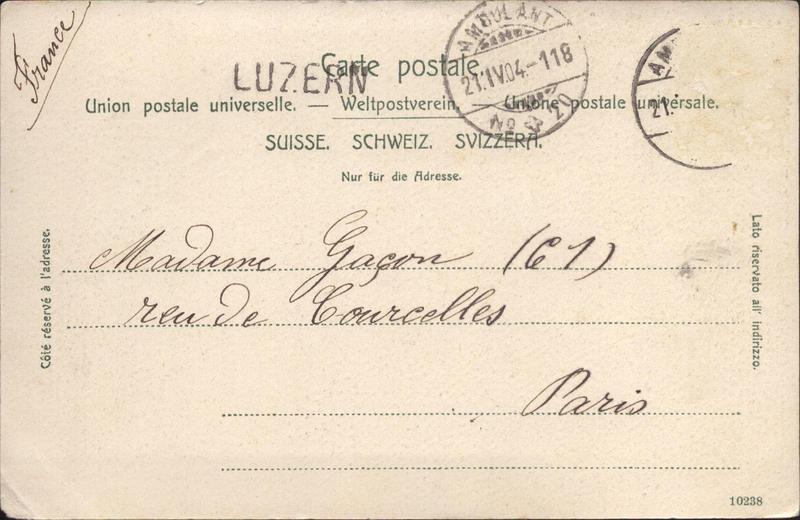 France
Carte postale.
LUZERN
AMBULANT
21.IV.04.-118
No 20
AM
21.
Union postale universelle. — Weltpostverein. — Unione postale universale.
SUISSE. SCHWEIZ. SVIZZERA.
Nur für die Adresse.
Côté réservé à l'adresse.
Lato riservato all' indirizzo.
Madame Gaçon (61)
reu de Courcelles
Paris
10238